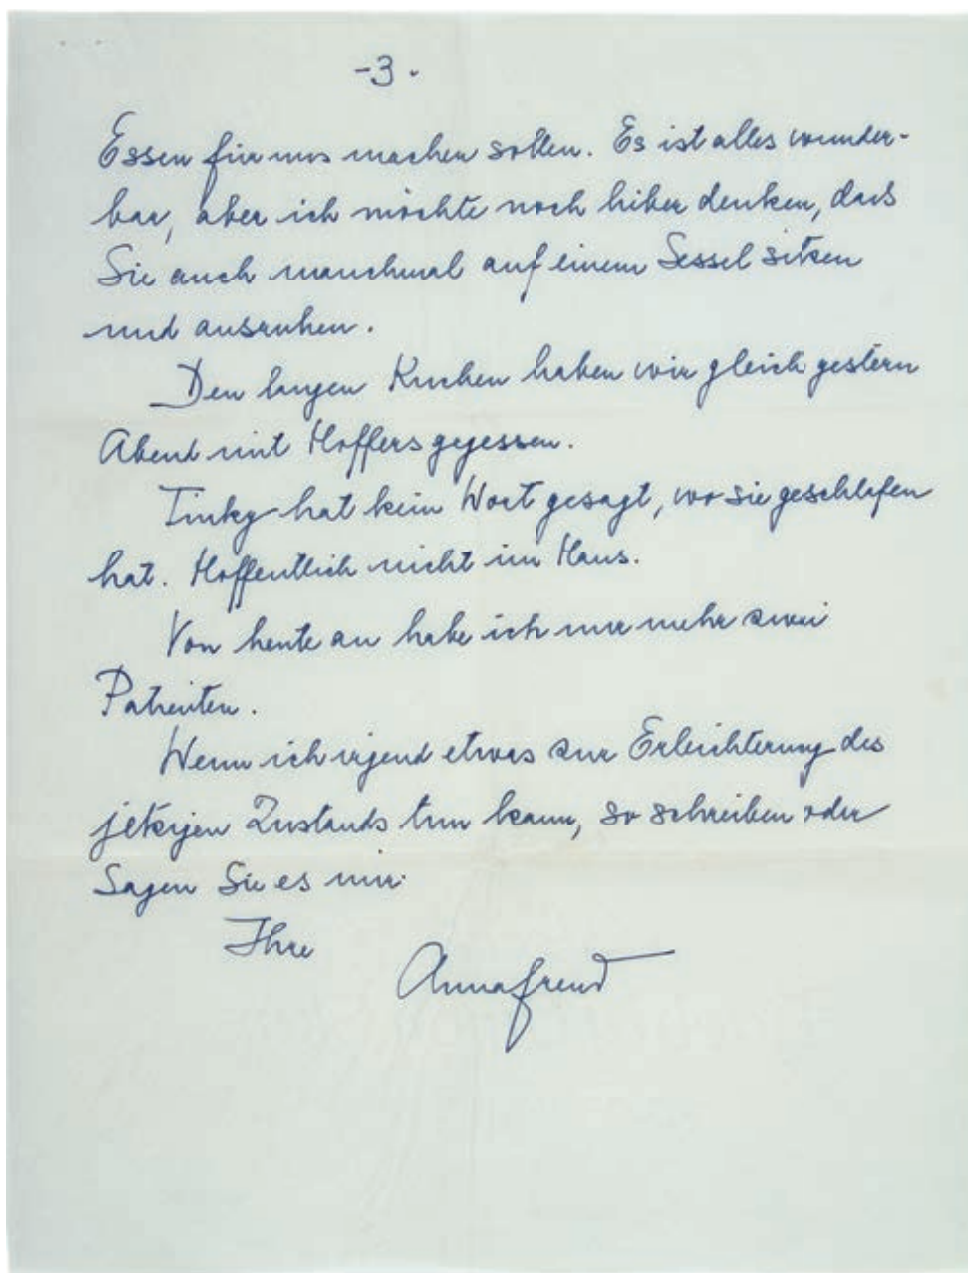 -3.
Essen für uns machen sollen. Es ist alles wunder-
bar, aber ich möchte noch lieber denken, dass
Sie auch manchmal auf einem Sessel sitzen
und ausruhen.
Den langen Kuchen haben wir gleich gestern
Abend mit Hoffers gegessen.
Tinky hat kein Wort gesagt, wo sie geschlafen
hat. Hoffentlich nicht im Haus.
Von heute an habe ich nur mehr zwei
Patienten.
Wenn ich irgend etwas zur Erleichterung des
jetzigen Zustands tun kann, so schreiben oder
sagen Sie es mir.
Ihre
Anna Freud